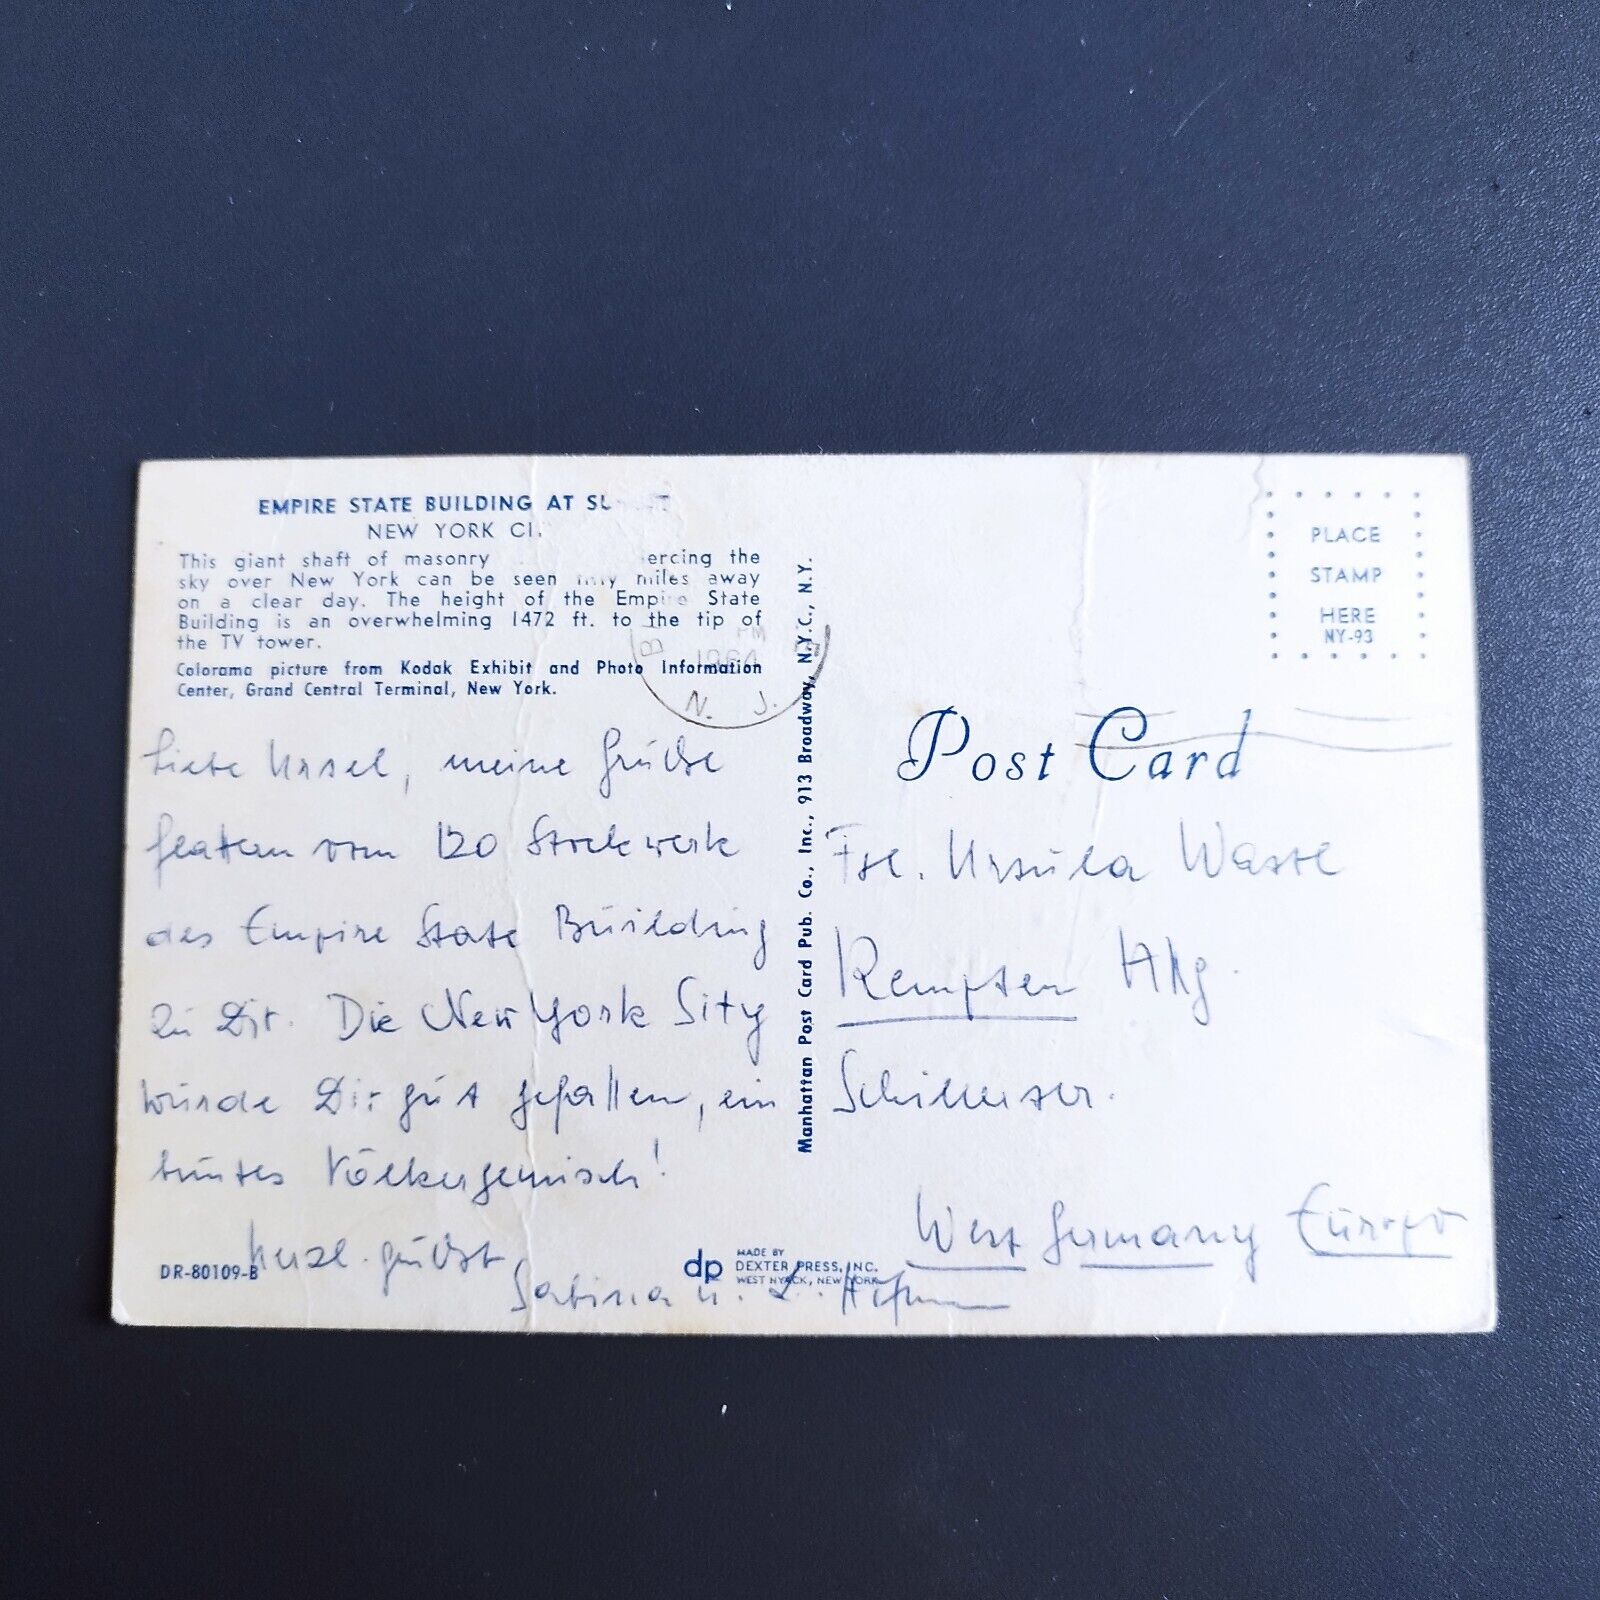 EMPIRE STATE BUILDING AT
NEW YORK
This giant shaft of masonry ercing the
sky over New York can be seen miles away
on a clear day. The height of the Empire State
Building is an overwhelming 1472 ft. to the tip of
the TV tower.
Colorama picture from Kodak Exhibit and Photo Information
Center, Grand Central Terminal, New York.
PM
1964
N. J.
Liebe Ursel, meine Grüße
flattern vom 120 Stockwerk
des Empire State Building
zu Dir. Die New York Sity
würde Dir gut gefallen, ein
buntes Völkergemisch!
Herzl. grüßt
Sabina u.
DR-80109-B
dp
MADE BY
DEXTER PRESS, INC.
WEST NYACK, NEW YORK
Manhattan Post Card Pub. Co., Inc., 913 Broadway, N.Y.C., N.Y.
PLACE
STAMP
HERE
NY-93
Post Card
Frl. Ursula Wastl
Kempten Allg.
Schillerstr.
West Germany Europa